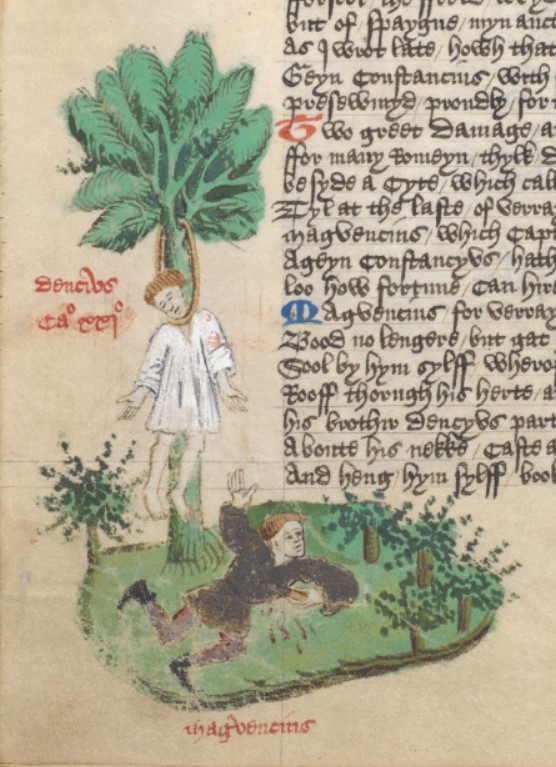 but of Spaygne, myn auct
as J wrot late, howh that
Geyn Constancius, with
presewmyd proudly, for
Two greet damage, a
ffor many Romeyn, thylk d
be syde a Cyte, which cal
Tyl at the laste, of verra
magvencius, which Capt
Ageyn Constancyvs, hath
loo how fortune, Can hir
Magvencius, for verray
Bood no lengere, but gat
Sool by hym sylff, wherof
Rooff thorugh his herte, a
his brothir dencyvs part
Aboute his nekke, Caste a
And heng, hym sylff, book
dencivs
Cao xxio
magvencius